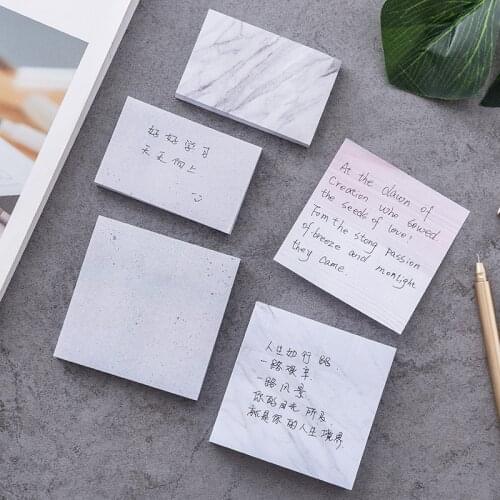 好好学习
天天向上
At the dawn of
Creation who sowed
the seeds of love?
Fom the stong passion
of breeze and monlight
they came.
人生如行路
一路艰辛
一路风景
你的目光所及
就是你的人生境界